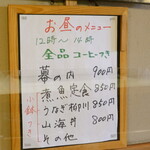 お昼のメニュー
12時〜14時
全品コーヒーつき
幕の内 900円
煮魚定食 850円
うなぎ柳川 850円
山海丼 800円
その他
小鉢